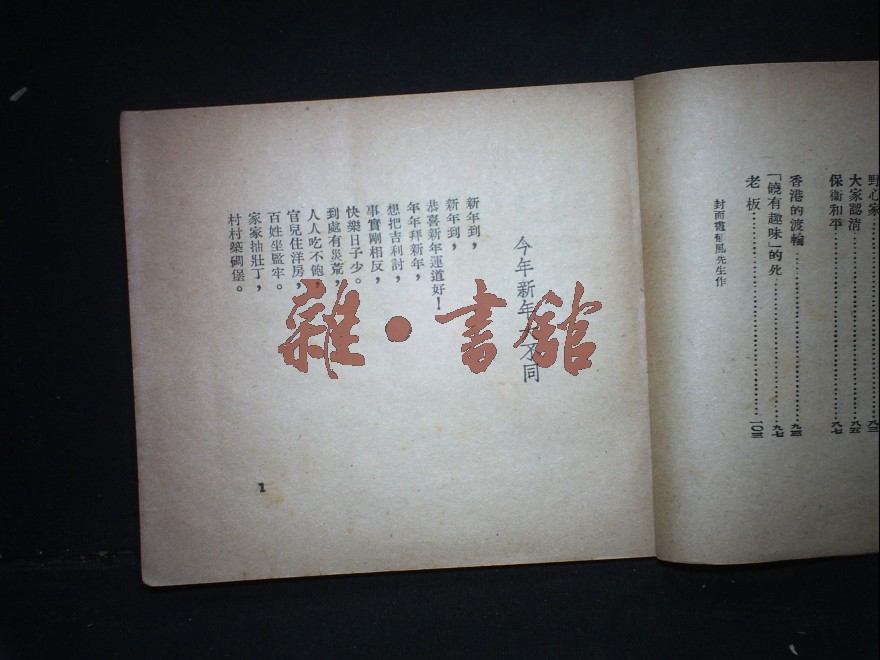 野心家……八三
大家認清……八五
保衛和平……八七
香港的渡輪……九三
「饒有趣味」的死……九七
老板……一〇三
封面鬱風先生作
今年新年大不同
新年到，
新年到，
恭喜新年運道好！
年年拜新年，
想把吉利討，
事實剛相反，
快樂日子少。
到處有災荒，
人人吃不飽，
官兒住洋房，
百姓坐監牢。
家家抽壯丁，
村村築碉堡。
1
雜·書館